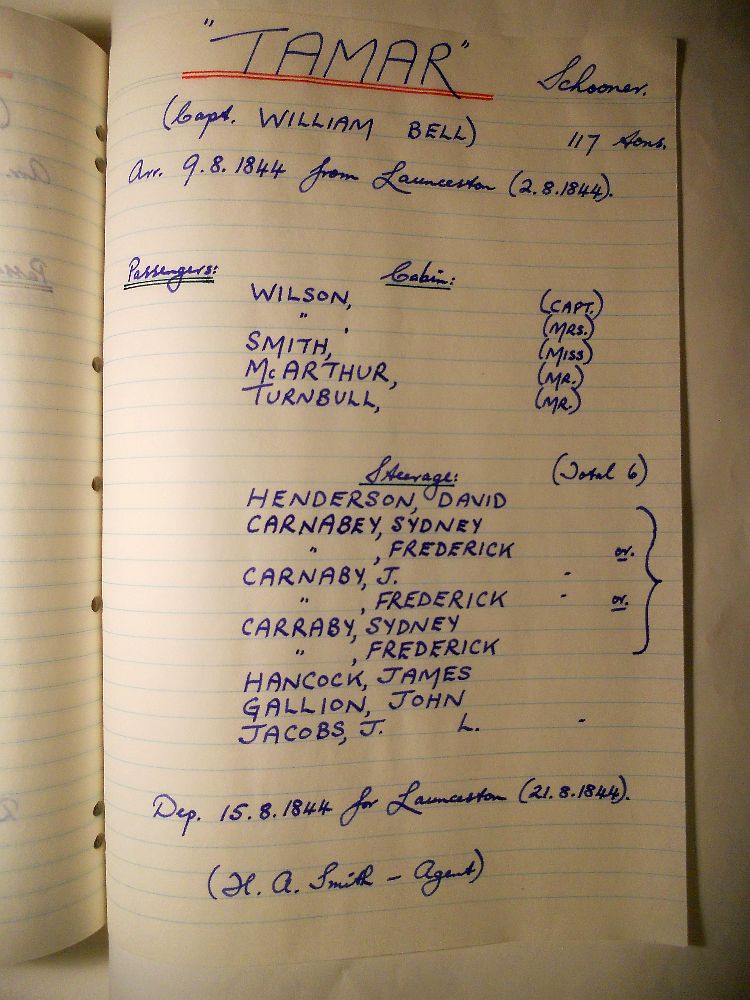 "TAMAR" Schooner.
(Capt. WILLIAM BELL) 117 tons.
Arr. 9.8.1844 from Launceston (2.8.1844).
Passengers: Cabin:
WILSON, (CAPT.)
" , (MRS.)
SMITH, (MISS)
McARTHUR, (MR.)
TURNBULL, (MR.)
Steerage: (Total 6)
HENDERSON, DAVID
CARNABEY, SYDNEY
" , FREDERICK or.
CARNABY, J. -
" , FREDERICK - or.
CARRABY, SYDNEY
" , FREDERICK
HANCOCK, JAMES
GALLION, JOHN
JACOBS, J. L. -
Dep. 15.8.1844 for Launceston (21.8.1844).
(H. A. Smith - Agent)